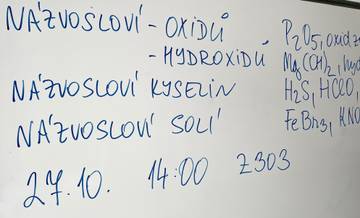 NÁZVOSLOVÍ - OXIDŮ
- HYDROXIDŮ
NÁZVOSLOVÍ KYSELIN
NÁZVOSLOVÍ SOLÍ
27.10. 14:00 Z303
P2O5, oxid
Mg(CH)2, hyd
H2S, HClO,
FeBr3, KNO